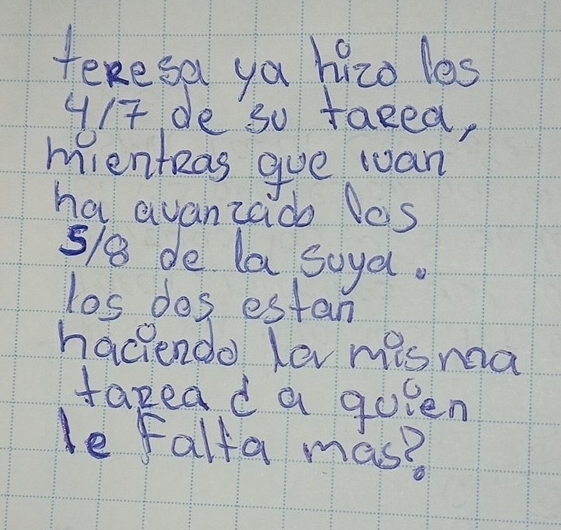 teresa ya hizo los
4/7 de su tarea,
mientras que ivan
ha avanzado los
5/8 de la suya.
los dos estan
haciendo la misma
tarea ¿ a quien
le Falta mas?